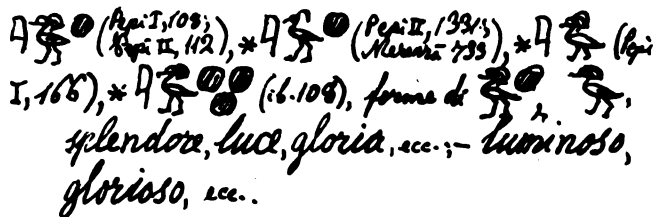 𓇋𓅜𓐍 (Pepi I, 108; Pepi II, 112), * 𓇋𓅜𓐍 (Pepi II, 1331; Merenrā 733), * 𓇋𓅜 (Pepi
I, 166), * 𓇋𓅜𓐍𓐍𓐍 (ib. 108), forme di 𓅜𓐍, 𓅜,
splendore, luce, gloria, ecc.; – luminoso,
glorioso, ecc..